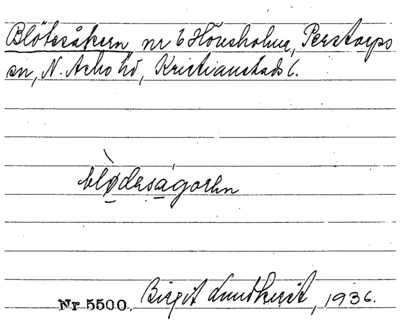 Blötesåkern nr 6 Hönsholma, Perstorps
sn, N. Åsbo hd, Kristianstads l.
blø̀dəságorən
Nr 5500. Birgit Lundkvist, 1936.